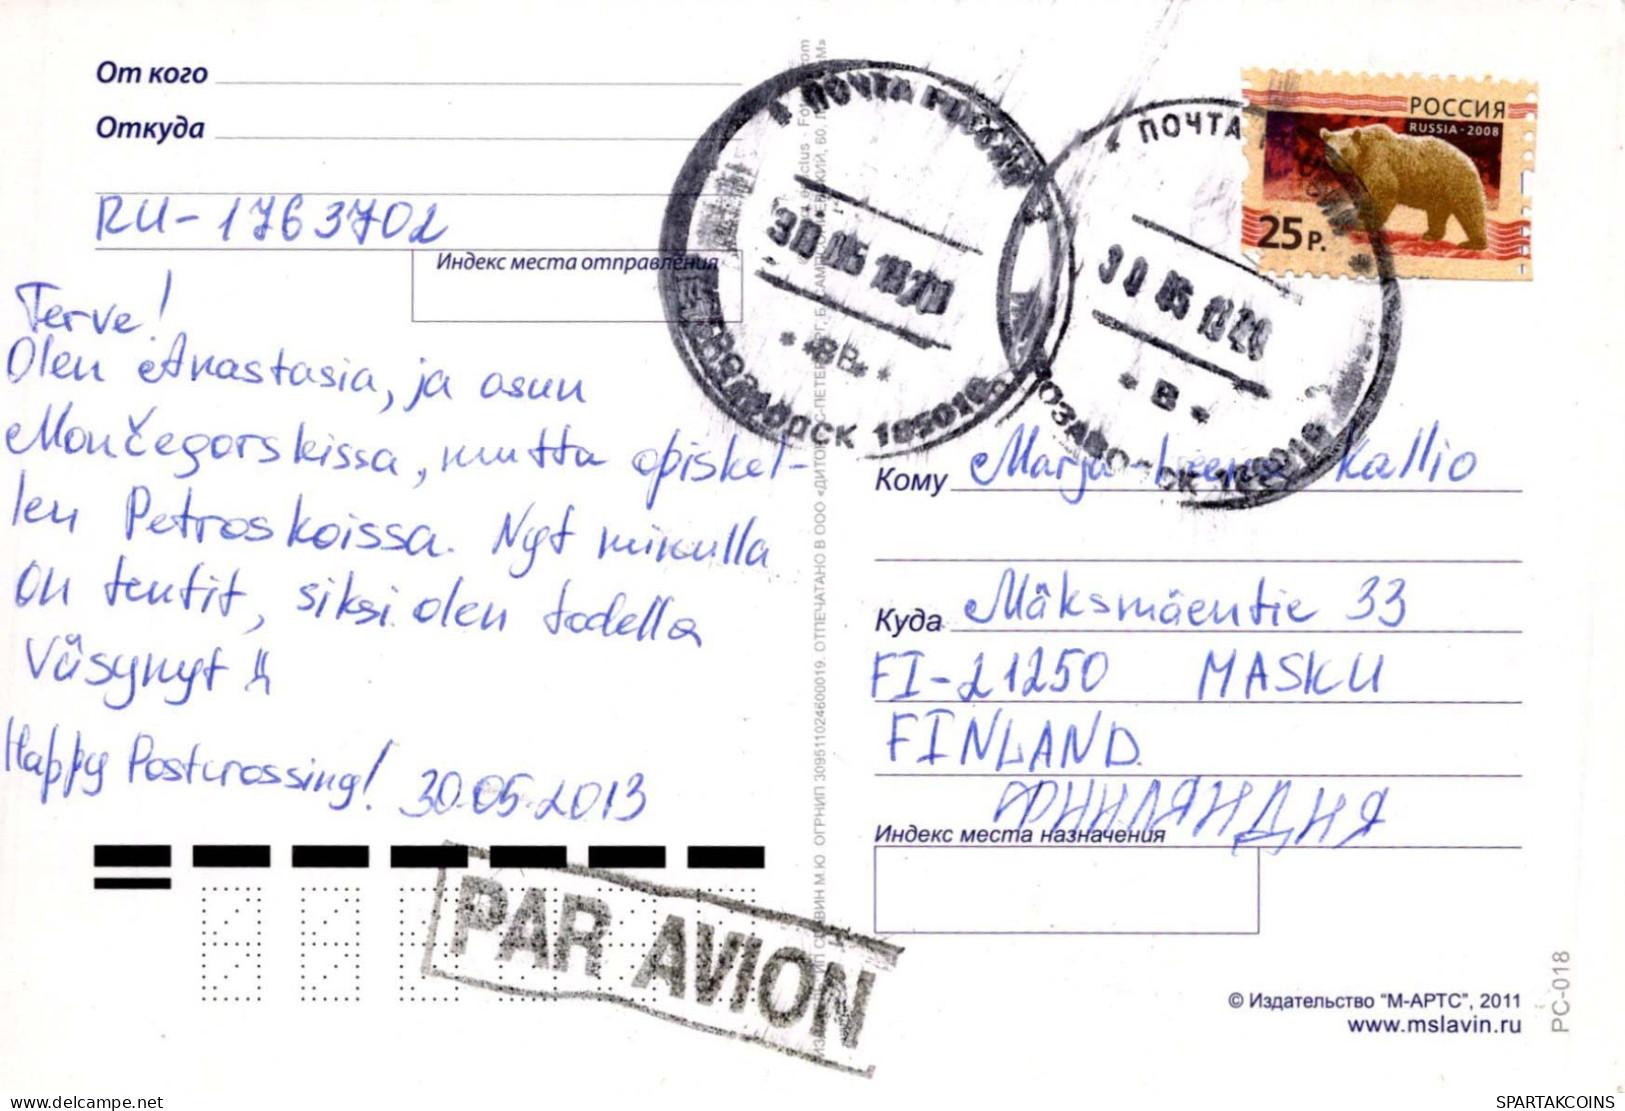 От кого
Откуда
RU-1763702
Индекс места отправления
Terve!
Olen Anastasia, ja asun
Mončegorskissa, mutta opiskel-
len Petroskoissa. Nyt minulla
on tentit, siksi olen todella
Väsynyt
Happy Postcrossing! 30.05.2013
PAR AVION
ПОЧТА РОССИИ
30 05
ПОЧТА
30 05
* В *
РОССИЯ
RUSSIA - 2008
25 Р.
Кому Marja-Leena Kallio
Куда Mäksmäentie 33
FI-21250 MASKU
FINLAND
ФИНЛЯНДИЯ
Индекс места назначения
© Издательство "М-АРТС", 2011
www.mslavin.ru
PC-018
eurocoin.ee
SPARTAKCOINS